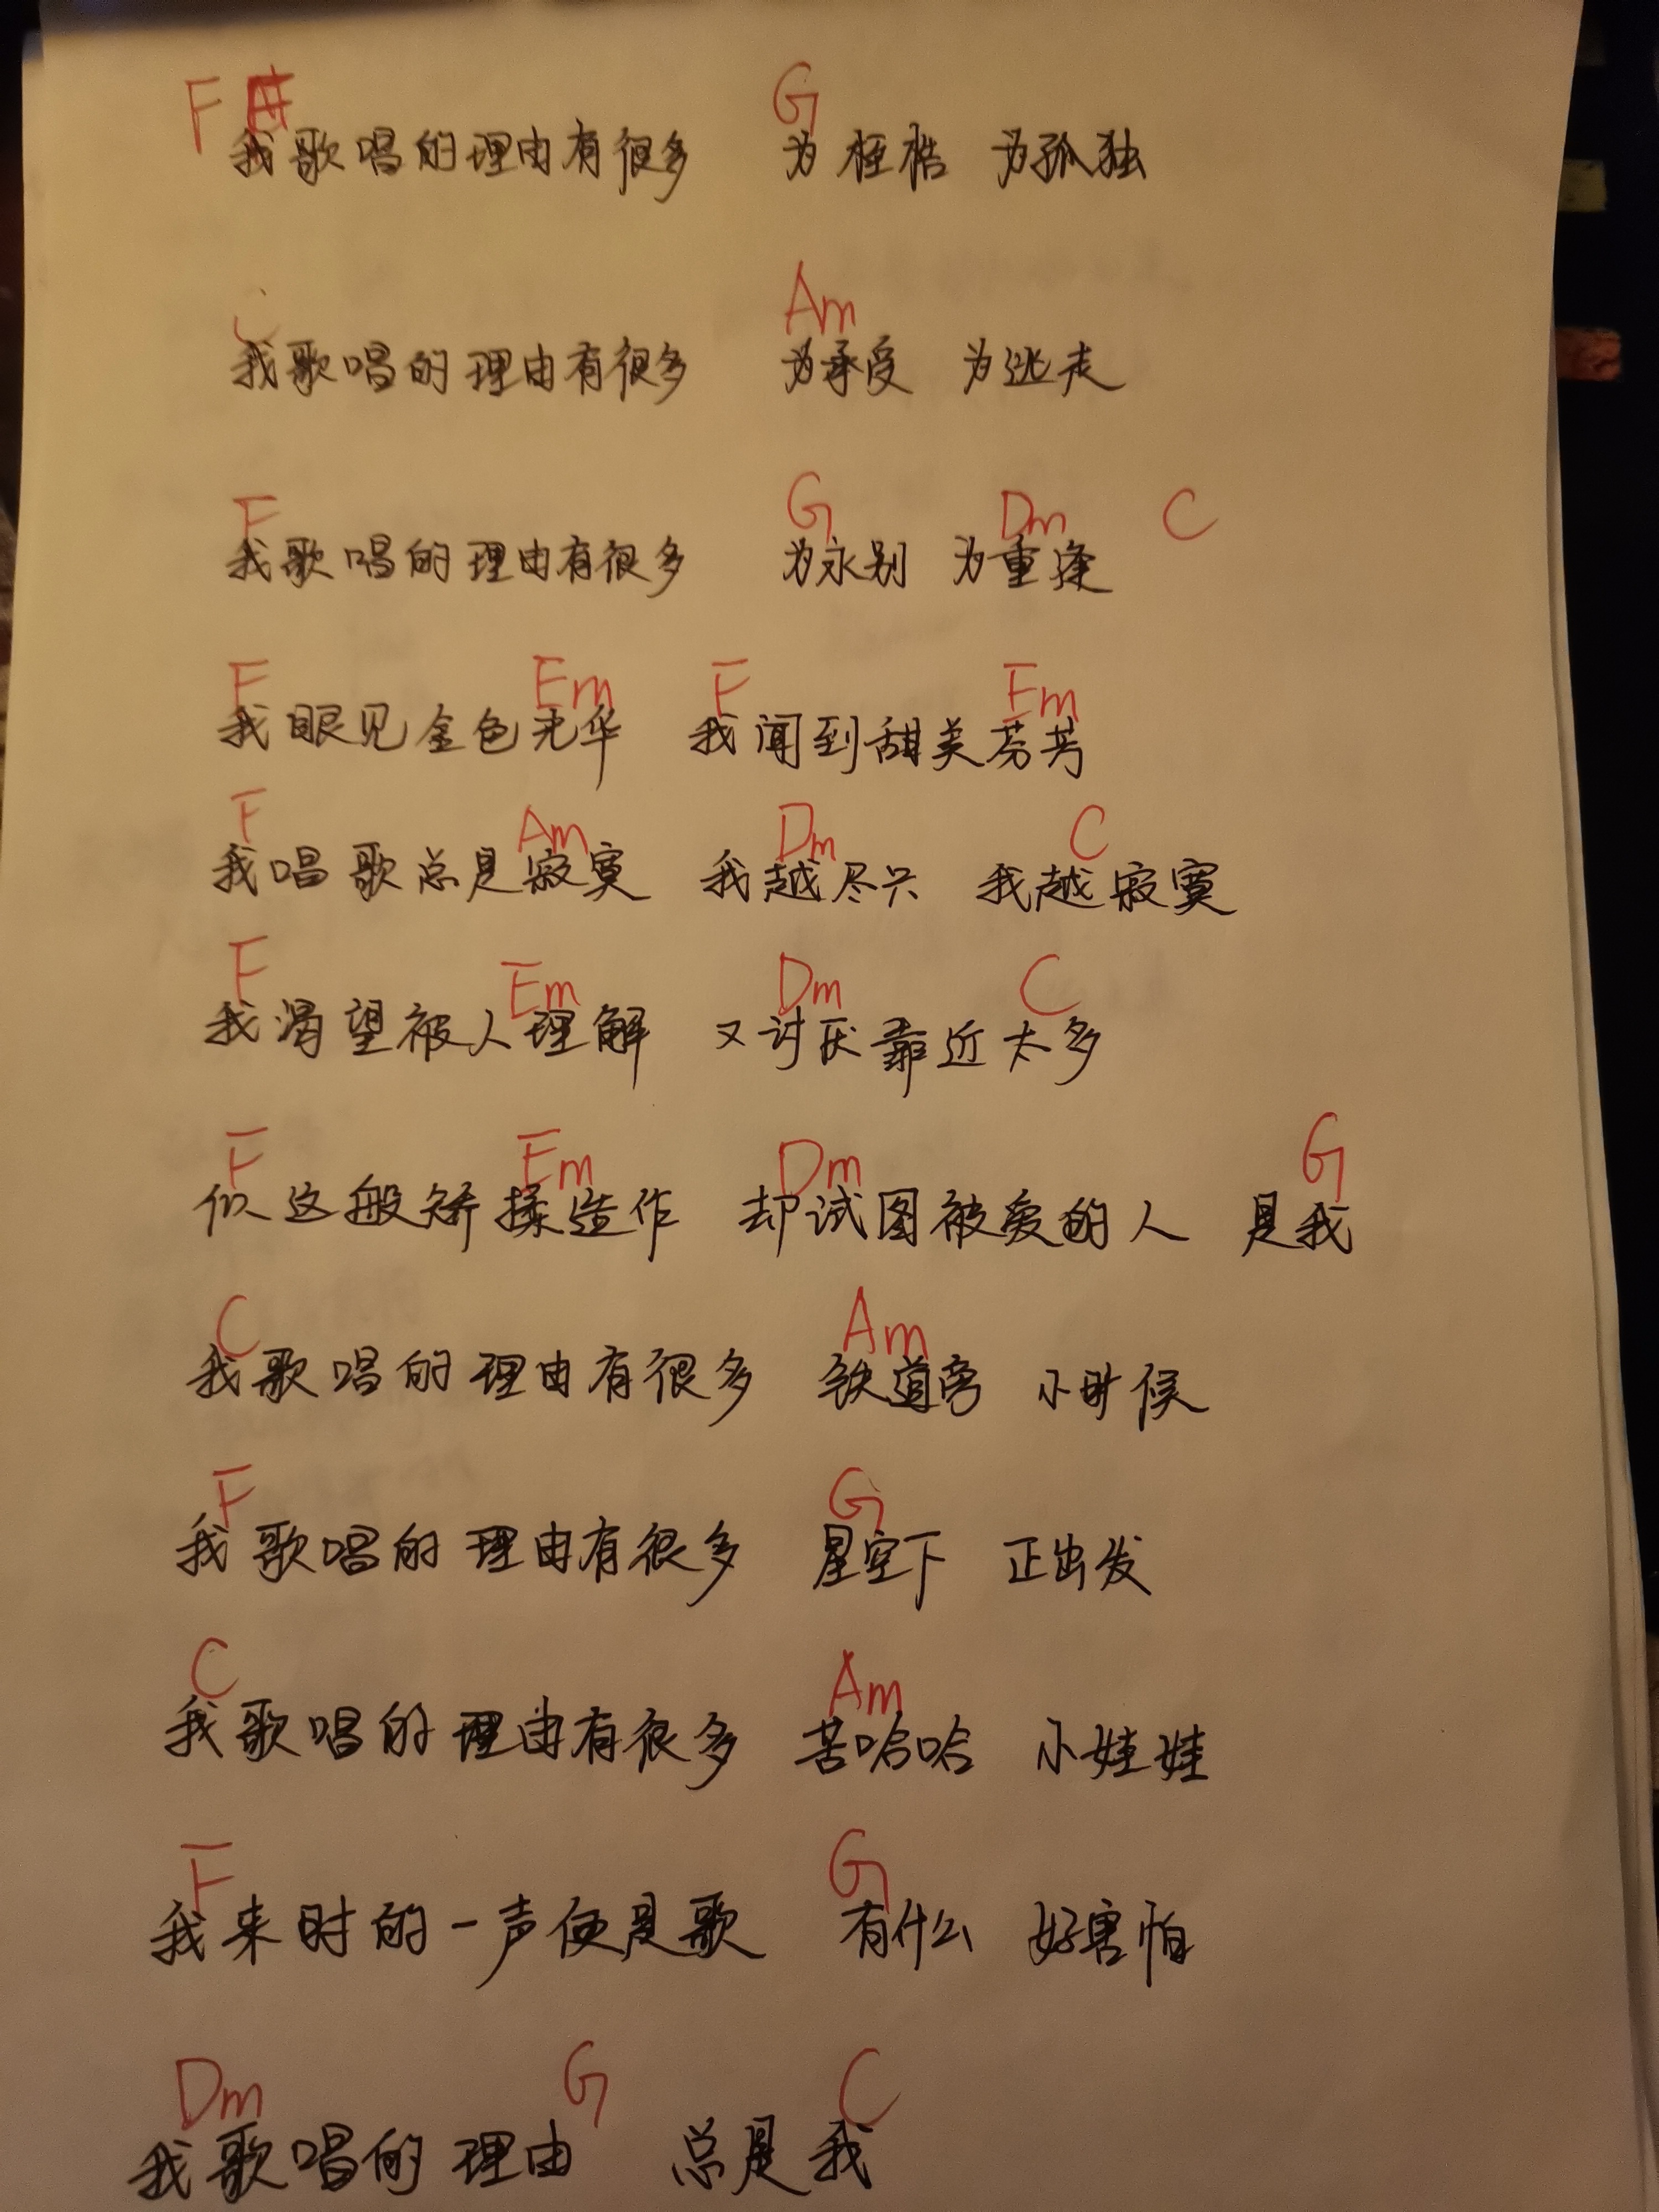 F G
我歌唱的理由有很多 为桎梏 为孤独
C Am
我歌唱的理由有很多 为承受 为逃走
F G Dm C
我歌唱的理由有很多 为永别 为重逢
F Em F Em
我眼见金色光华 我闻到甜美芬芳
F Am Dm C
我唱歌总是寂寞 我越尽兴 我越寂寞
F Em Dm C
我渴望被人理解 又讨厌靠近太多
F Em Dm G
似这般矫揉造作 却试图被爱的人 是我
C Am
我歌唱的理由有很多 铁道旁 小时候
F G
我歌唱的理由有很多 星空下 正出发
C Am
我歌唱的理由有很多 苦哈哈 小娃娃
F G
我来时的一声便是歌 有什么 好害怕
Dm G C
我歌唱的理由 总是我